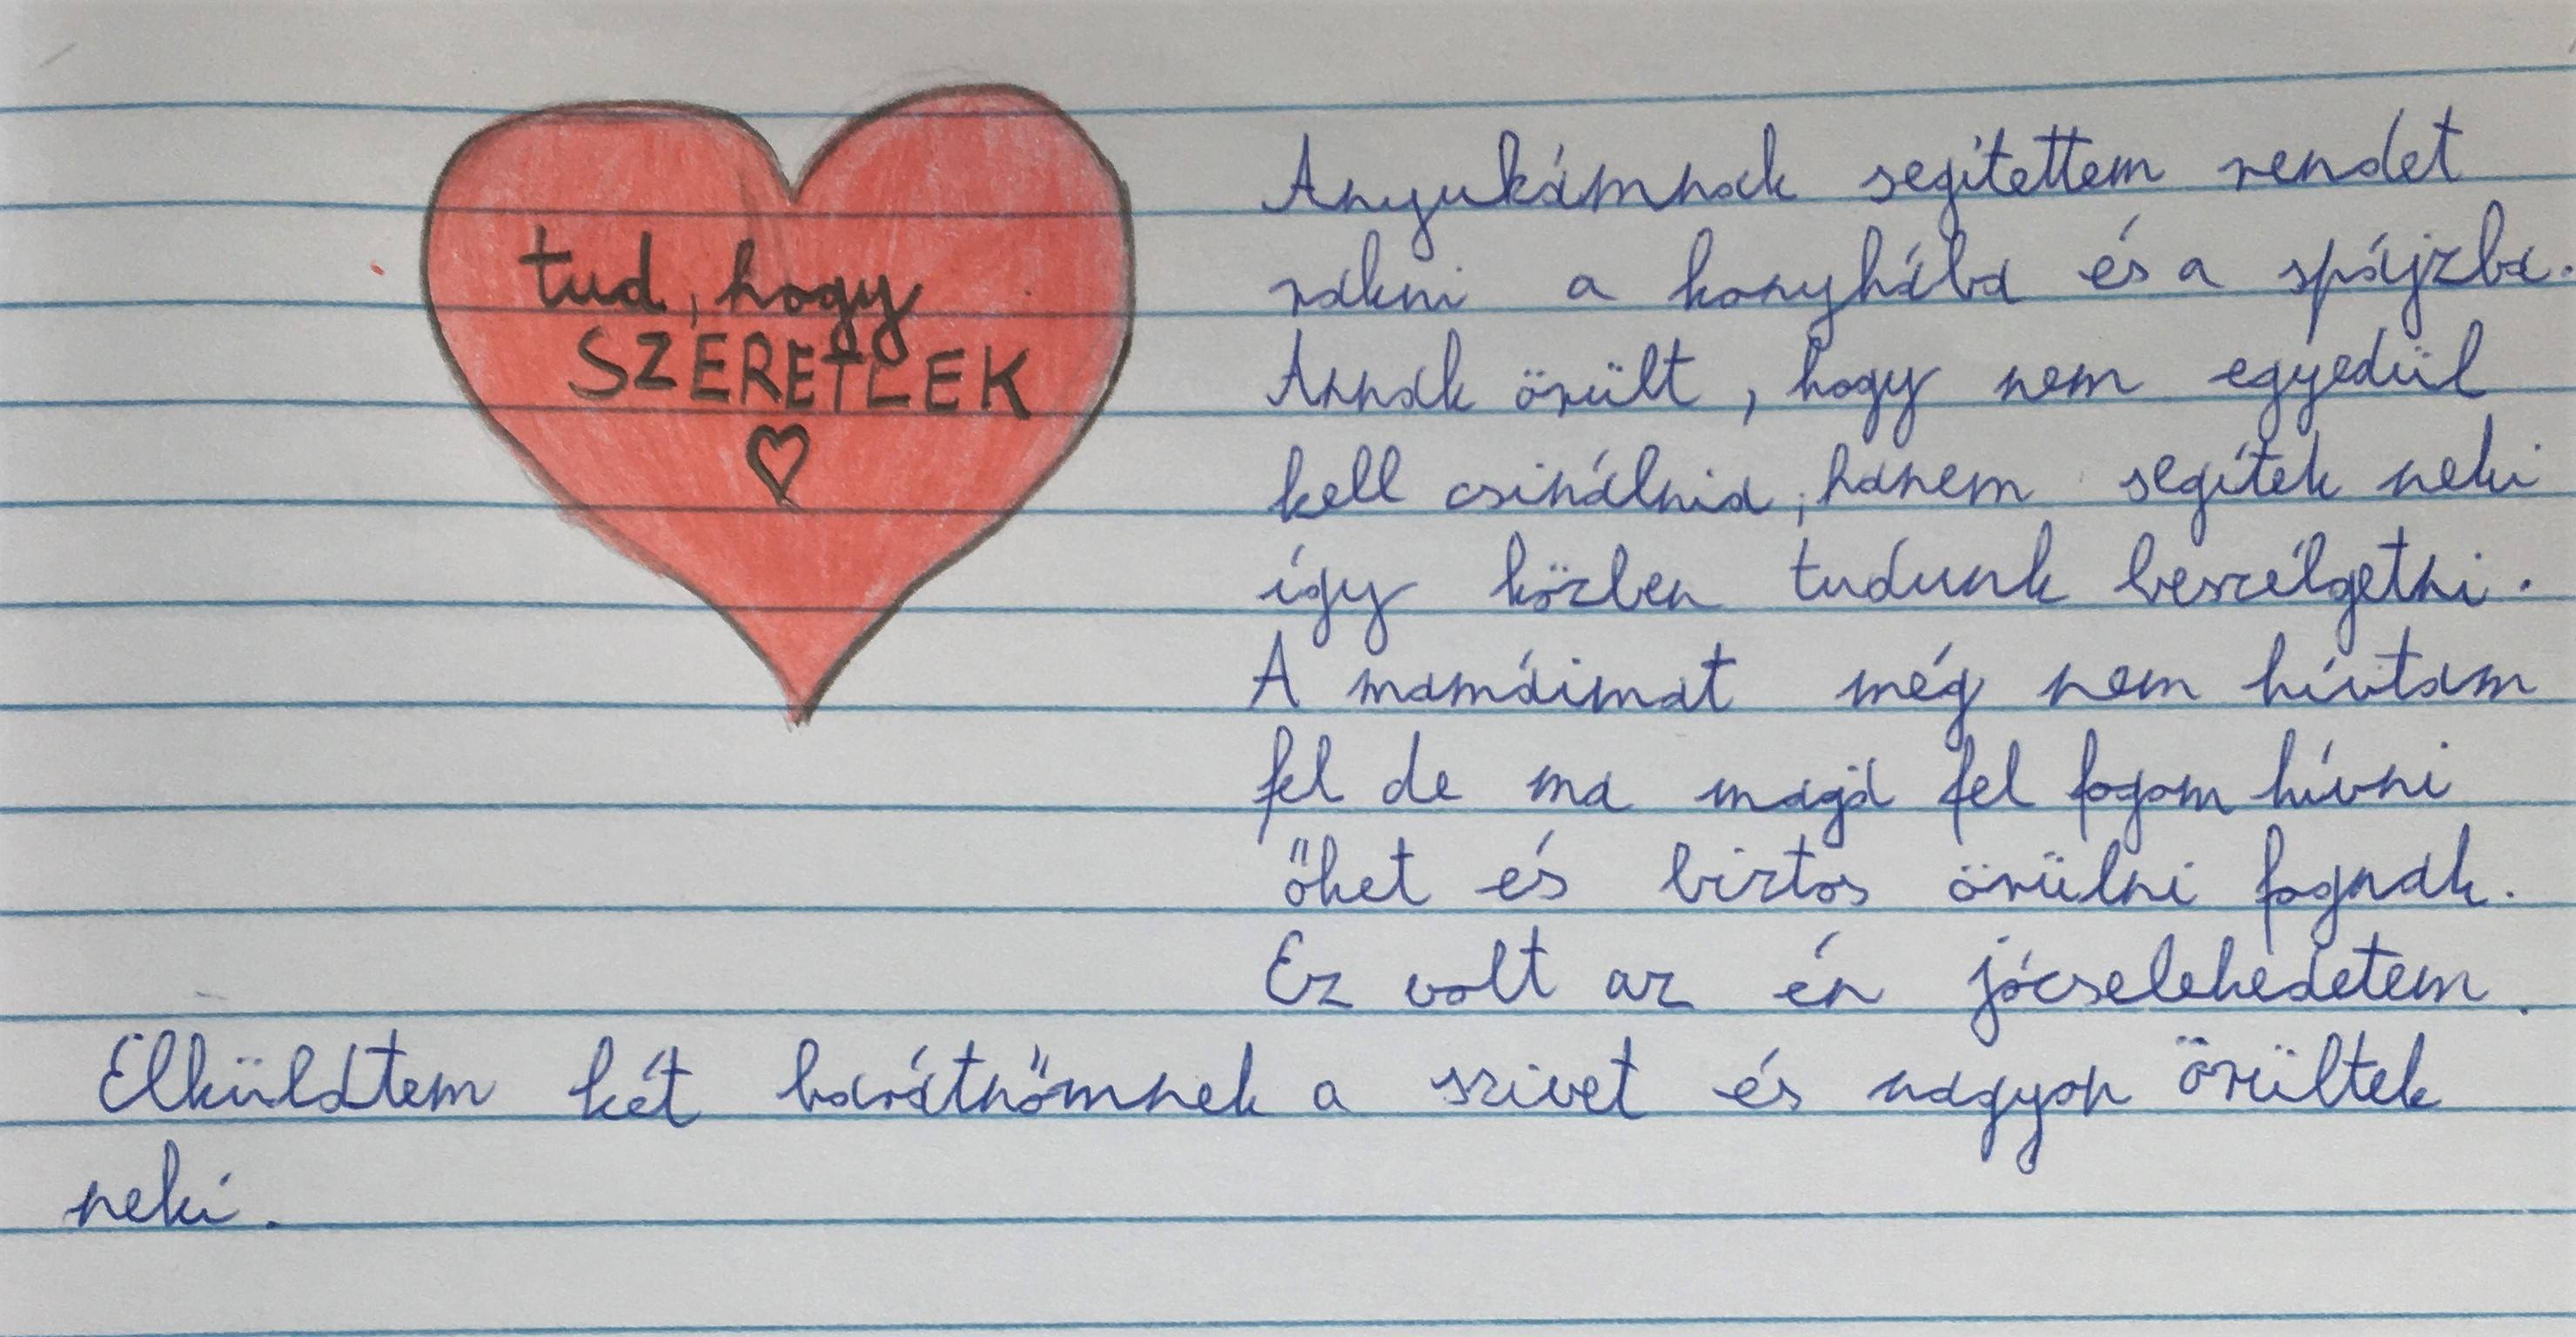 tud, hogy
SZERETLEK
Anyukámnak segítettem rendet
rakni a konyhába és a spájzba.
Annak örült, hogy nem egyedül
kell csinálnia, hanem segítek neki
így közben tudunk beszélgetni.
A mamáimat még nem hívtam
fel de ma magd fel fogom hívni
őket és biztos örülni fognak.
Ez volt az én jócselekedetem.
Elküldtem két barátnőmnek a szivet és nagyon örültek
neki.